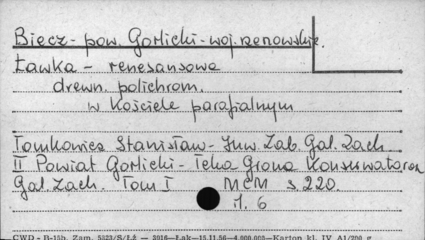 Biecz - pow. Gorlicki - woj. rzeszowskie.
Ławka - renesansowa
drewn. polichrom.
w Kościele parafialnym
Tomkowicz Stanisław - Inw. Zab. Gal. Zach.
II Powiat Gorlicki - Teka Grona Konserwatorów
Gal. Zach. Tom I MCM s 220.
f. 6
CWD - B-15b. Zam. 5523/S/Łż - 3916 - Łak - 15.11.56 - 4.000.005 - Karton kl. IV A1/200 g